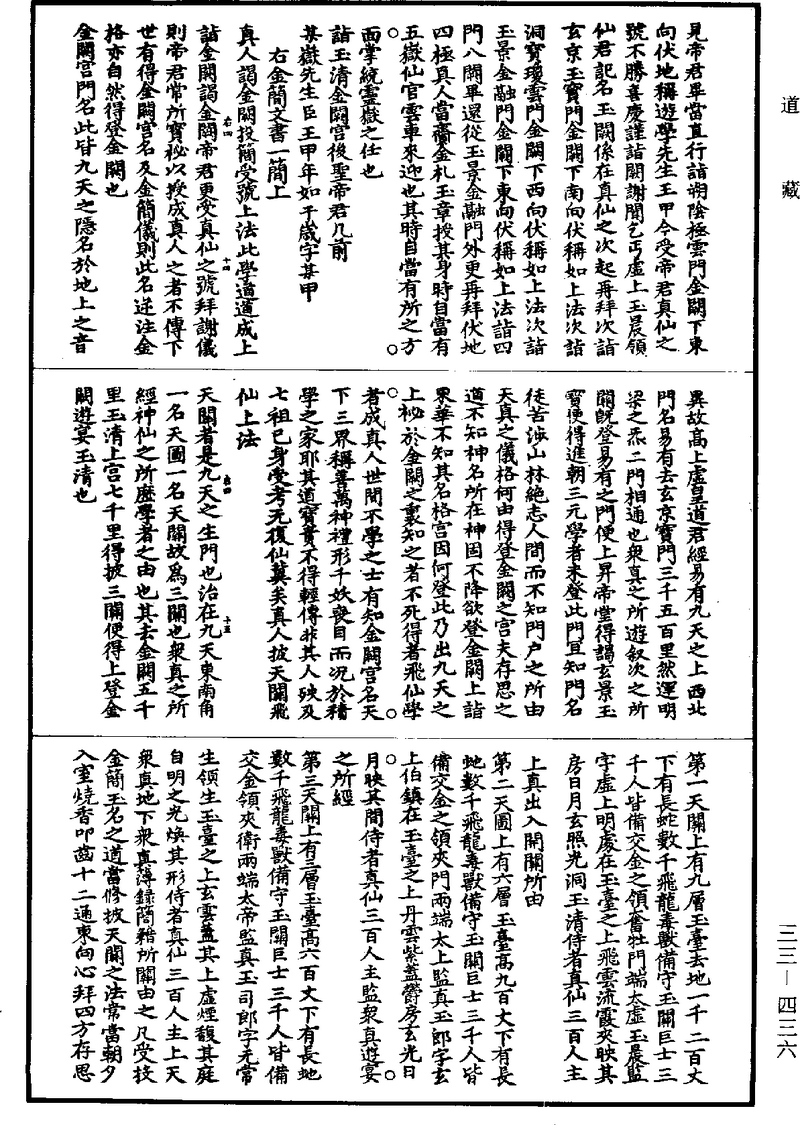 道藏
三三—四三六
見帝君畢當直行詣朔陰極雲門金闕下東
向伏地稱遊學先生王甲今受帝君真仙之
號不勝喜慶謹詣闕謝聞乞丐虛上玉晨領
仙君記名玉闕係在真仙之次起再拜次詣
玄京玉寶門金闕下南向伏稱如上法次詣
洞寶瓊雲門金闕下西向伏稱如上法次詣
玉景金融門金闕下東向伏稱如上法詣四
門八關畢還從玉景金融門外更再拜伏地
四極真人當齎金札玉章授其身時自當有
五嶽仙官雲車來迎也其時自當有所之方
面掌統靈嶽之任也
詣玉清金闕宮後聖帝君几前
某嶽先生臣王甲年如干歲字某甲
右金簡文書一簡上
真人謁金闕投簡受號上法此學道道成上
詣金闕謁金闕帝君更受真仙之號拜謝儀
則帝君常所寶祕以授成真人之者不傳下
世有得金闕宮名及金簡儀則此名逆注金
格亦自然得登金闕也
金闕宮門名此皆九天之隱名於地上之音
異故高上虛皇道君經易有九天之上西北
門名易有去玄京寶門三千五百里然運明
梁之炁二門相通也衆真之所遊叙次之所
關既登易有之門便上昇帝堂得謁玄景玉
寶便得進朝三元學者未登此門宜知門名
徒苦涉山林絶志人間而不知門戶之所由
天真之儀格何由得登金闕之宮夫存思之
道不知神名所在神固不降欲登金闕上詣
眾華不知其名格宮因何登此乃出九天之
上祕於金闕之裏知之者不死得者飛仙學
者成真人世間不學之士有知金闕宮名天
下三界稱善萬神禮形千妖喪目而况於積
學之家耶其道寶貴不得輕傳非其人殃及
七祖已身受考无復仙冀矣真人披天關飛
仙上法
天關者是九天之生門也治在九天東南角
一名天圖一名天關故爲三關也衆真之所
經神仙之所歷學者之由也其去金闕五千
里玉清上宮七千里得披三關便得上登金
闕遊宴玉清也
第一天關上有九層玉臺去地一千二百丈
下有長蛇數千飛龍毒獸備守玉關巨士三
千人皆備交金之領奮牡門端太虛玉晨監
字虛上明處在玉臺之上飛雲流霞夾映其
房日月玄照光洞玉清侍者真仙三百人主
上真出入開關所由
第二天圖上有六層玉臺高九百丈下有長
虵數千飛龍毒獸備守玉關巨士三千人皆
備交金之領夾門兩端太上監真玉郎字玄
上伯鎮在玉臺之上丹雲紫蓋欝房玄光日
月映其間侍者真仙三百人主監衆真遊宴
之所經
第三天關上有三層玉臺高六百丈下有長虵
數千飛龍毒獸備守玉關巨士三千人皆備
交金領夾衛兩端太帝監真玉司郎字无常
生領生玉臺之上玄雲蓋其上虛煙馥其庭
自明之光煥其形侍者真仙三百人主上天
衆真地下衆真簿録簡籍所關由之凡受技
金簡玉名之道當修披天關之法常當朝夕
入室燒香叩齒十二通東向心拜四方存思